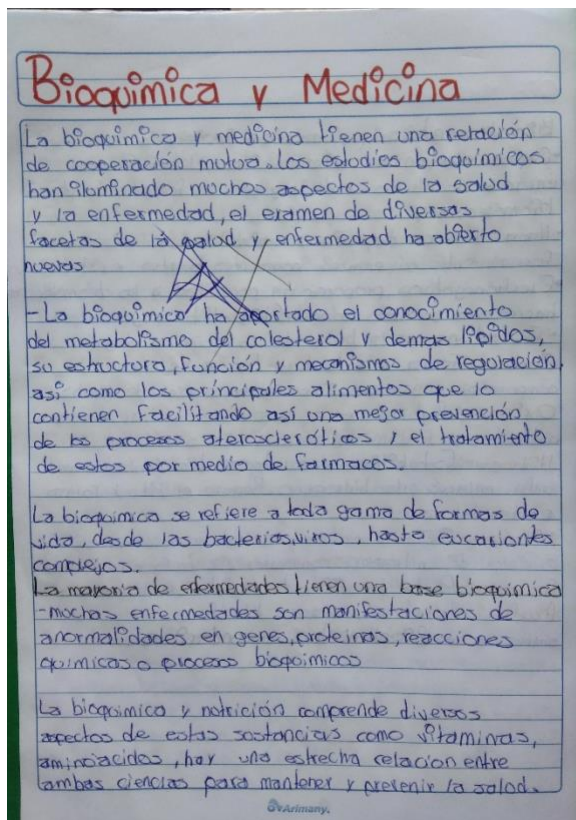 Bioquimica y Medicina
La bioquimica y medicina tienen una relación
de cooperación mutua. Los estudios bioquimicos
han iluminado muchos aspectos de la salud
y la enfermedad, el examen de diversas
facetas de la salud y enfermedad ha abierto
nuevos
-La bioquimica ha aportado el conocimiento
del metabolismo del colesterol y demas lipidos,
su estructura, función y mecanismos de regulación,
asi como los principales alimentos que lo
contienen facilitando así una mejor prevención
de los procesos ateroscleróticos y el tratamiento
de estos por medio de farmacos.
La bioquimica se refiere a toda gama de formas de
vida, desde las bacterias,virus, hasta eucariontes
complejos.
La mayoria de enfermedades tienen una base bioquimica
-muchas enfermedades son manifestaciones de
anormalidades en genes,proteinas, reacciones
quimicas o procesos bioquimicos
La bioquimica y nutrición comprende diversos
aspectos de estas sustancias como vitaminas,
aminoacidos, hay una estrecha relacion entre
ambas ciencias para mantener y prevenir la salud.
Arimany.